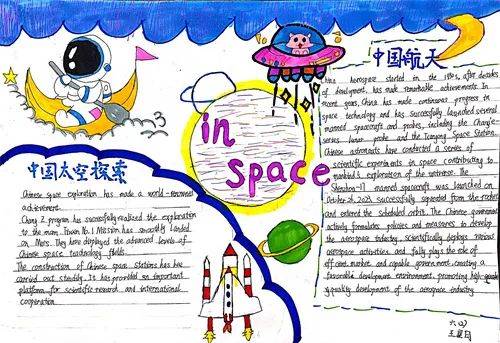 in
space
中国太空探索
Chinese space exploration has made a world-renowned
achievement.
Chang'E program has successfully realized the exploration
to the moon. Tianwen No.1 Mission has smoothly landed
on Mars. They have displayed the advanced levels of
Chinese space technology fields.
The construction of Chinese space stations has been
carried out steadily. It has provided an important
platform for scientific research and international
cooperation.
中国航天
aerospace started in the 1950s, after decades
of development, has made remarkable achievements. In
recent years, China has made continuous progress in
space technology and has successfully launched several
manned spacecraft and probes, including the Chang'e
series lunar probe and the Tiangong Space Station.
Chinese astronauts have conducted a series of
scientific experiments in space contributing to
mankind's exploration of the universe. The
Shenzhou-17 manned spacecraft was launched on
October 26, 2023 successfully separated from the rocket
and entered the scheduled orbit. The Chinese government
actively formulates policies and measures to develop
the aerospace industry, scientifically deploys various
aerospace activities and fully plays the role of
efficient market and capable government, creating a
favorable development environment, promoting high-quality
development of the aerospace industry.